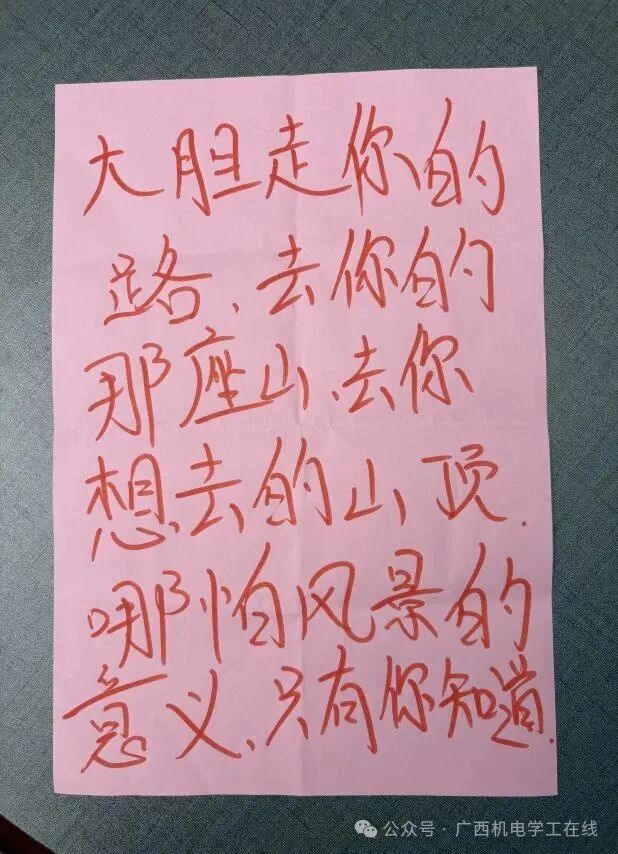 大胆走你的
路、去你的
那座山、去你
想去的山顶.
哪怕风景的
意义、只有你知道.
公众号·广西机电学工在线